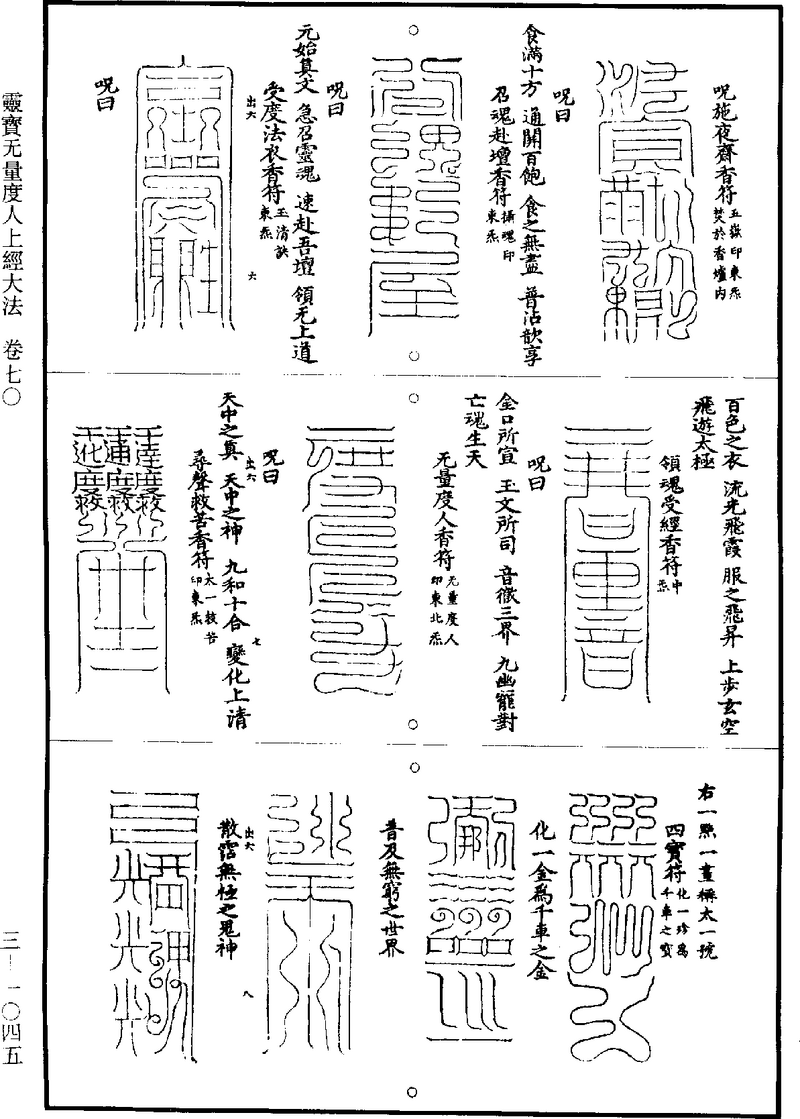 靈寶无量度人上經大法　卷七〇
三─一〇四五
呪施夜齋香符 五嶽印東炁焚於香爐内
呪曰
食滿十方　通開百飽　食之無盡　普沾歆享
召魂赴壇香符 攝魂印東炁
呪曰
元始真文　急召靈魂　速赴吾壇　領无上道
受度法衣香符 玉清訣東炁
出六　六
呪曰
百色之衣　流光飛霞　服之飛昇　上步玄空
飛遊太極
領魂受經香符 中炁
呪曰
金口所宣　玉文所司　音徹三界　九幽罷對
亡魂生天
无量度人香符 无量度人印東北炁
呪曰
出六　七
天中之真　天中之神　九和十合　變化上清
尋聲救苦香符 太一救苦印東炁
右一點一畫稱太一號
四寶符 化一珍為千車之寶
化一金為千車之金
普及無窮之世界
散霑無極之鬼神
出六　八